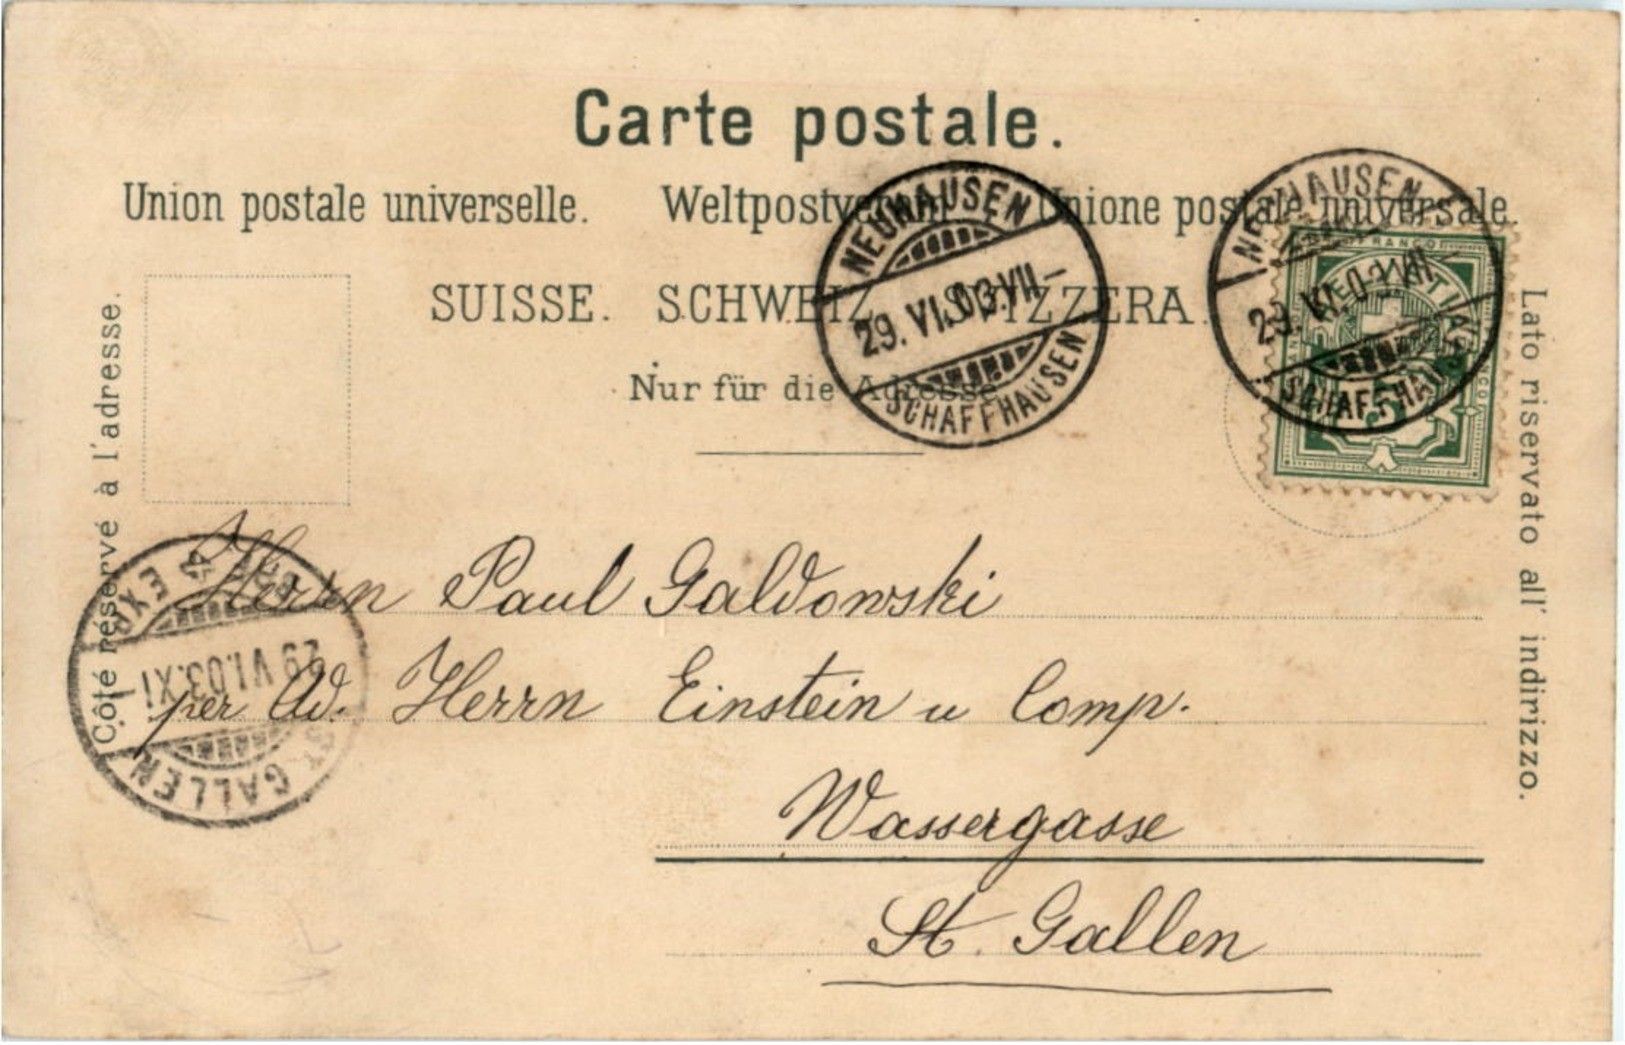 Carte postale.
Union postale universelle. Weltpostverein Unione postale universale.
SUISSE. SCHWEIZ. SVIZZERA.
Nur für die Adresse
Côté réservé à l'adresse.
Lato riservato all' indirizzo.
NEUHAUSEN
29. VI. 03. VII –
SCHAFFHAUSEN
NEUHAUSEN
29. VI. 03. VII –
SCHAFFHAUSEN
FRANCO
Herrn Paul Galdowski
per Ad. Herrn Einstein u Comp.
Wassergasse
St. Gallen
ST. GALLEN
29 VI. 03. XI